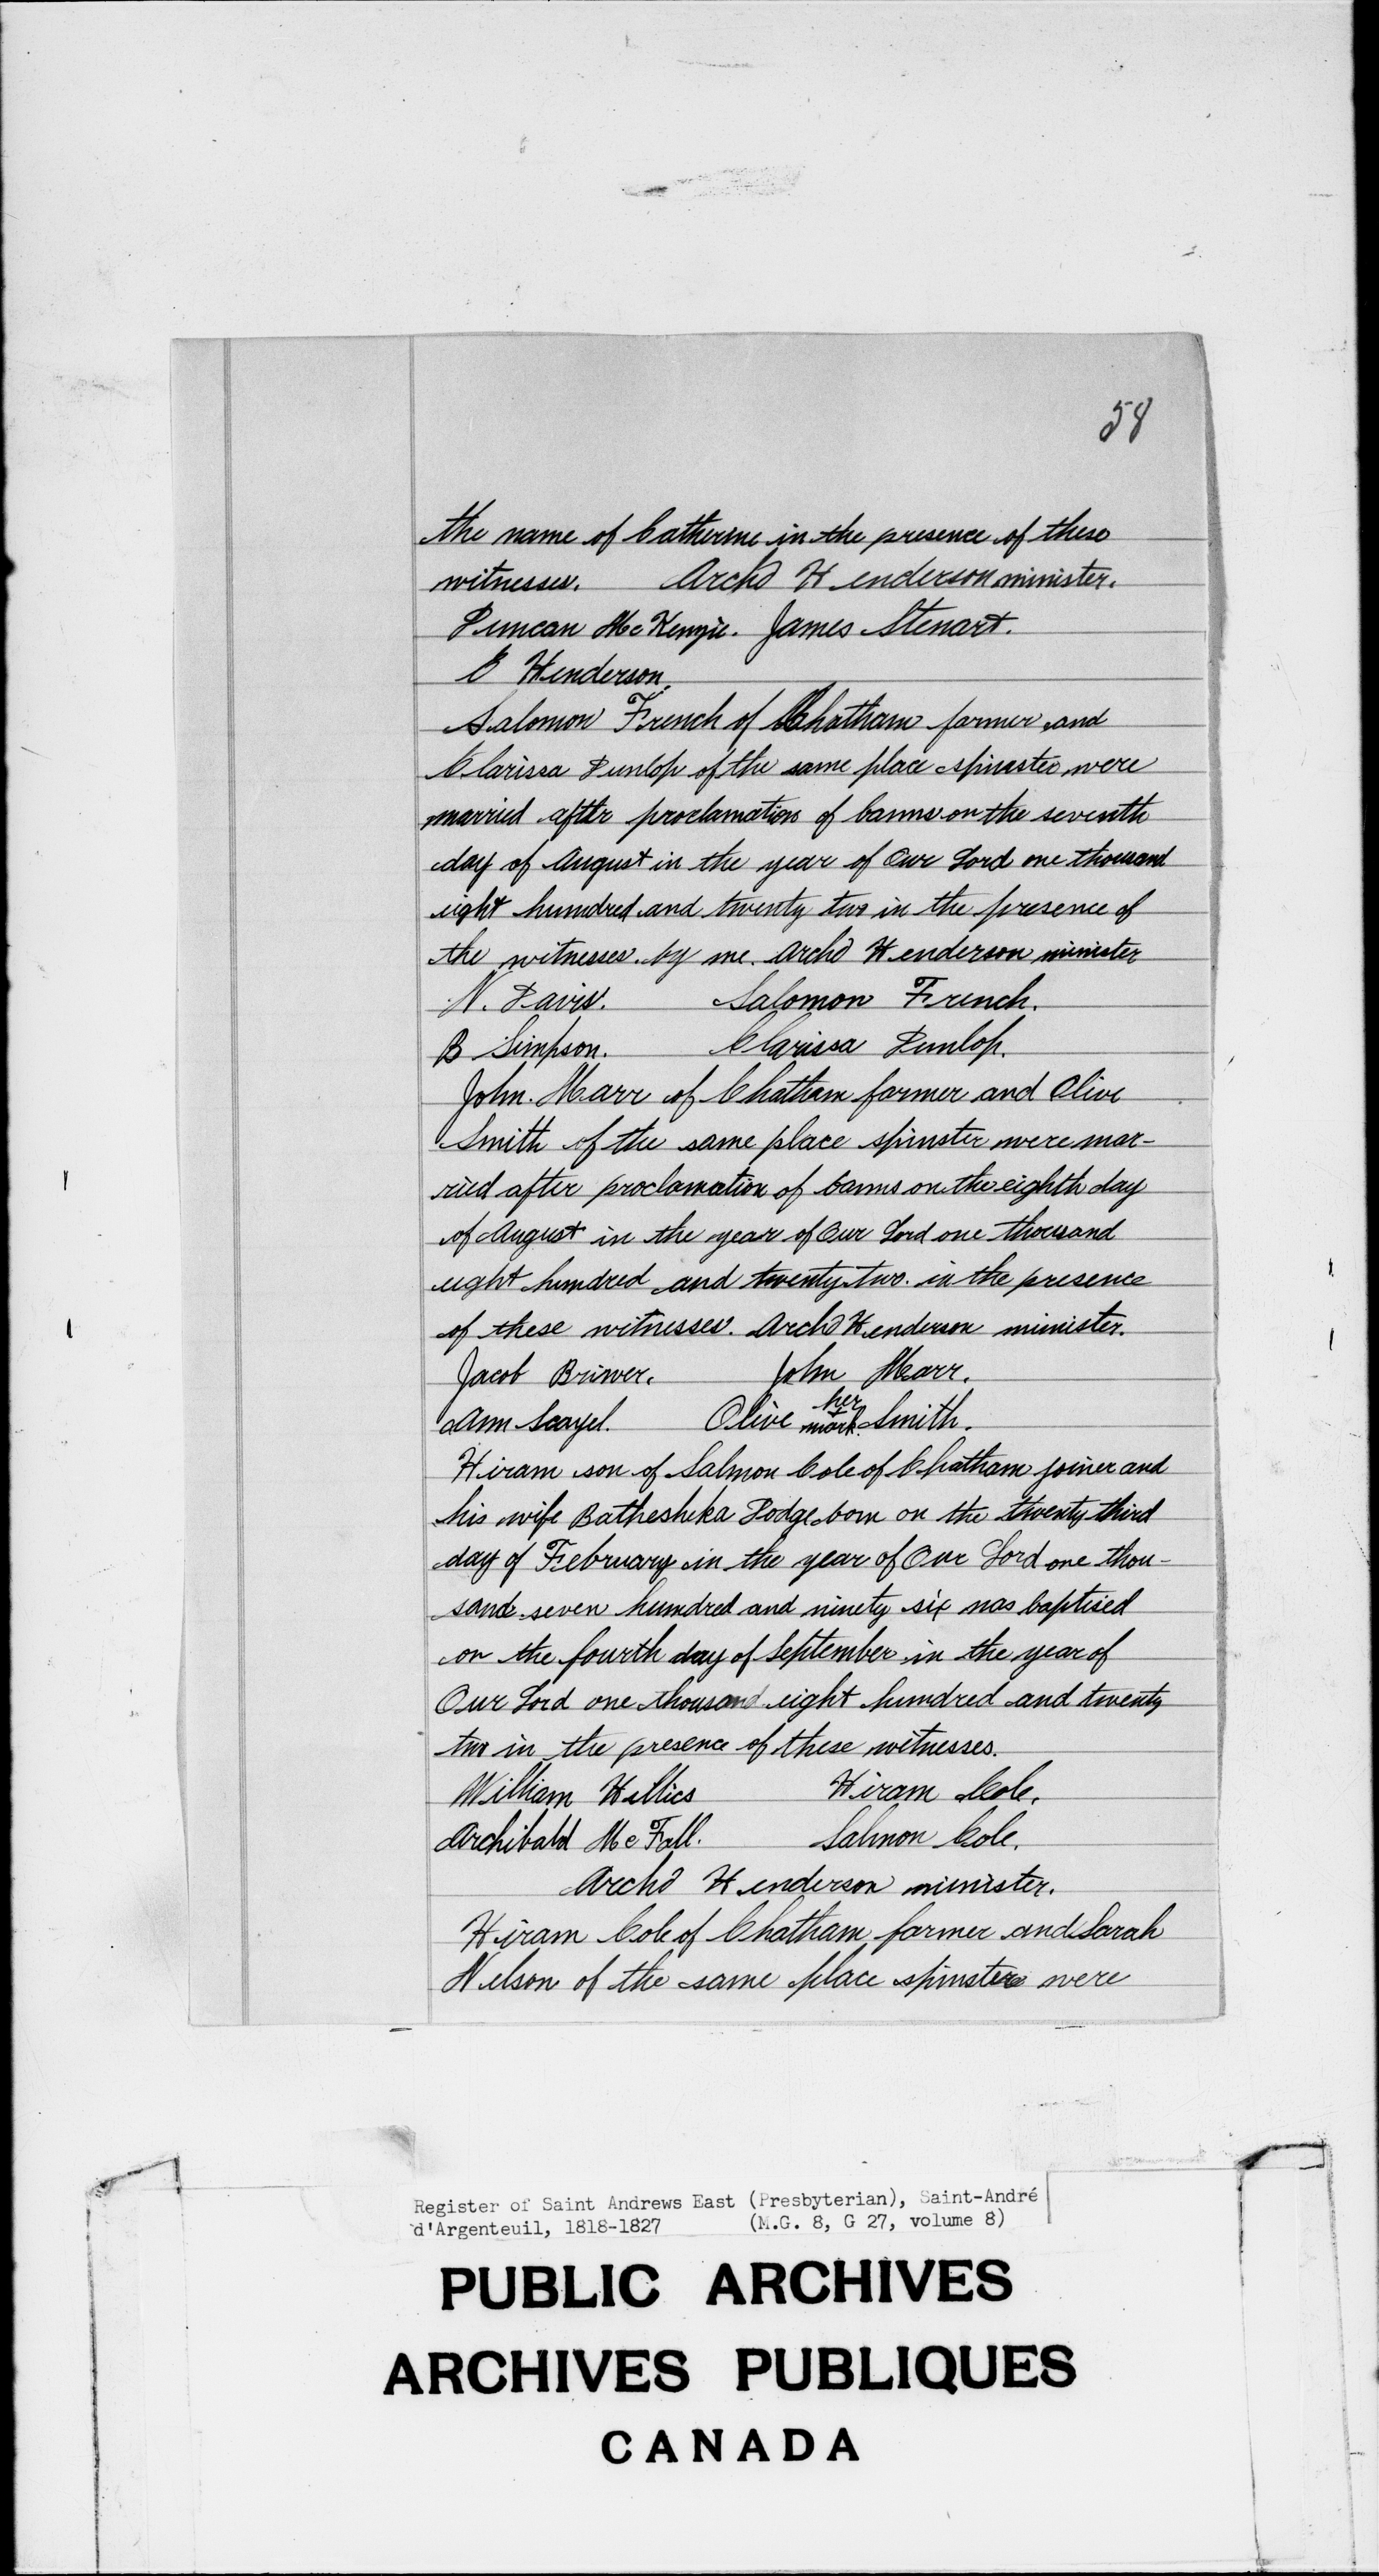 58
the name of Catherine in the presence of these
witnesses. Archd Henderson minister.
Duncan McKenzie. James Stenart.
E Henderson.
Salomon French of Chatham farmer and
Clarissa Dunlop of the same place spinster were
married after proclamation of banns on the seventh
day of August in the year of Our Lord one thousand
eight hundred and twenty two in the presence of
the witnesses by me. Archd Henderson minister
N. Davis. Salomon French.
B Simpson. Clarissa Dunlop.
John Marr of Chatham farmer and Olive
Smith of the same place spinster were mar-
ried after proclamation of banns on the eighth day
of August in the year of Our Lord one thousand
eight hundred and twenty two in the presence
of these witnesses. Archd Henderson minister.
Jacob Briwer. John Marr.
Ann Olive her + mark. Smith.
Hiram son of Salmon Cole of Chatham joiner and
his wife Dodge born on the twenty third
day of February in the year of Our Lord one thou-
sand seven hundred and ninety six was baptised
on the fourth day of September in the year of
Our Lord one thousand eight hundred and twenty
two in the presence of these witnesses.
William Hiram Cole.
Archibald McFall. Salmon Cole.
Archd Henderson minister.
Hiram Cole of Chatham farmer and Sarah
Nelson of the same place spinster were
Register of Saint Andrews East (Presbyterian), Saint-André
d'Argenteuil, 1818-1827 (M.G. 8, G 27, volume 8)
PUBLIC ARCHIVES
ARCHIVES PUBLIQUES
CANADA